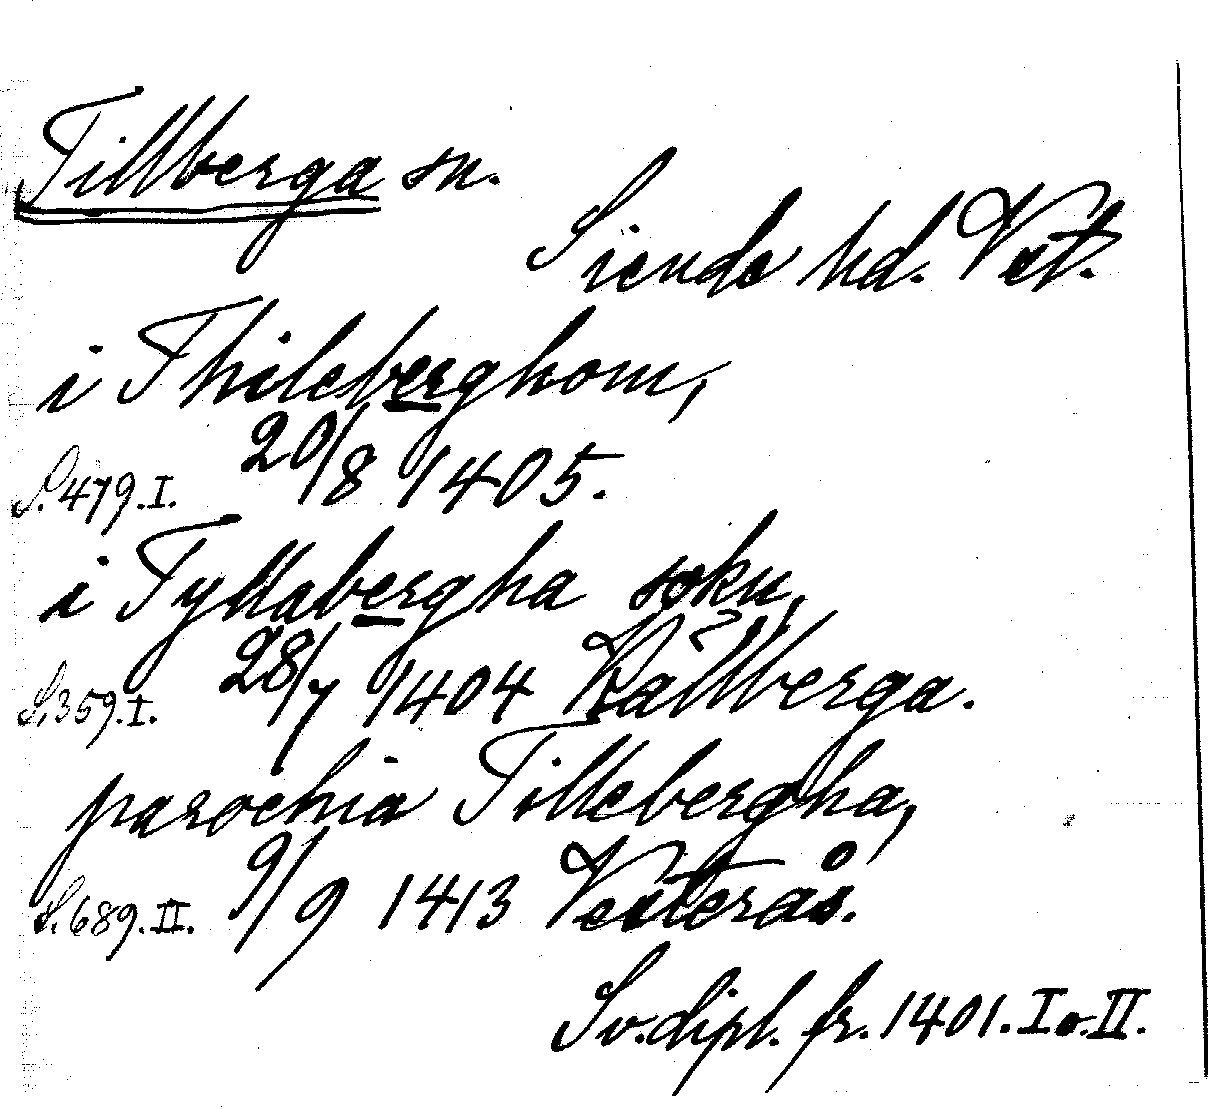 Tillberga sn.
Siende hd. Vstl.
i Thileberghom,
S. 479. I. 20/8 1405.
i Tyllabergha sokn,
S. 359. I. 28/7 1404 Kållberga.
parochia Tillebergha,
S. 689. II. 9/9 1413 Vesterås.
Sv. dipl. fr. 1401. I o. II.